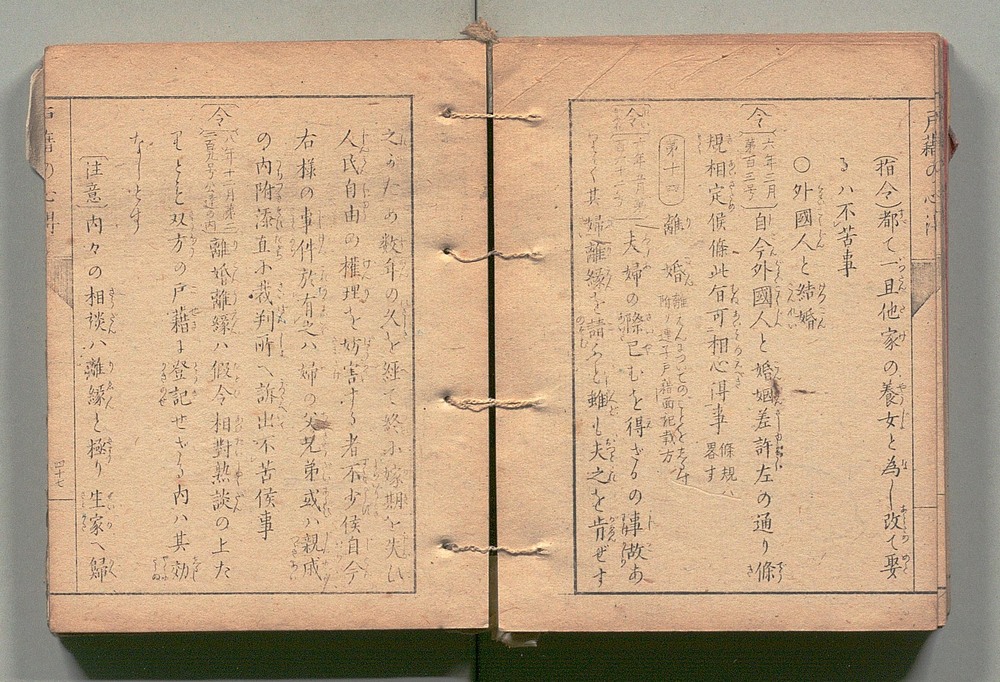 戸籍の心得
(指令)都て一旦他家の養女と為し改て娶
るハ不苦事
○外國人と結婚
(令)六年三月第百三号自今外國人と婚姻差許左の通り條
規相定候條此旨可相心得事 條規ハ畧す
第十四 離婚
(令)夫婦の際已むを得ざるの事故あ
りて其婦離縁を請ふと雖も夫之を肯ぜす
之がため数年の久を経て終に嫁期を失ひ
人民自由の權理を妨害する者不少候自今
右様の事件於有之ハ婦の父兄弟或ハ親戚
の内附添直に裁判所へ訴出不苦候事
(令)八年十二月第二百九号公達の内離婚離縁ハ假令相對熟談の上た
りとも双方の戸籍に登記せざる内ハ其効
なしとす
(注意)内々の相談ハ離縁と極り生家へ歸
四十七